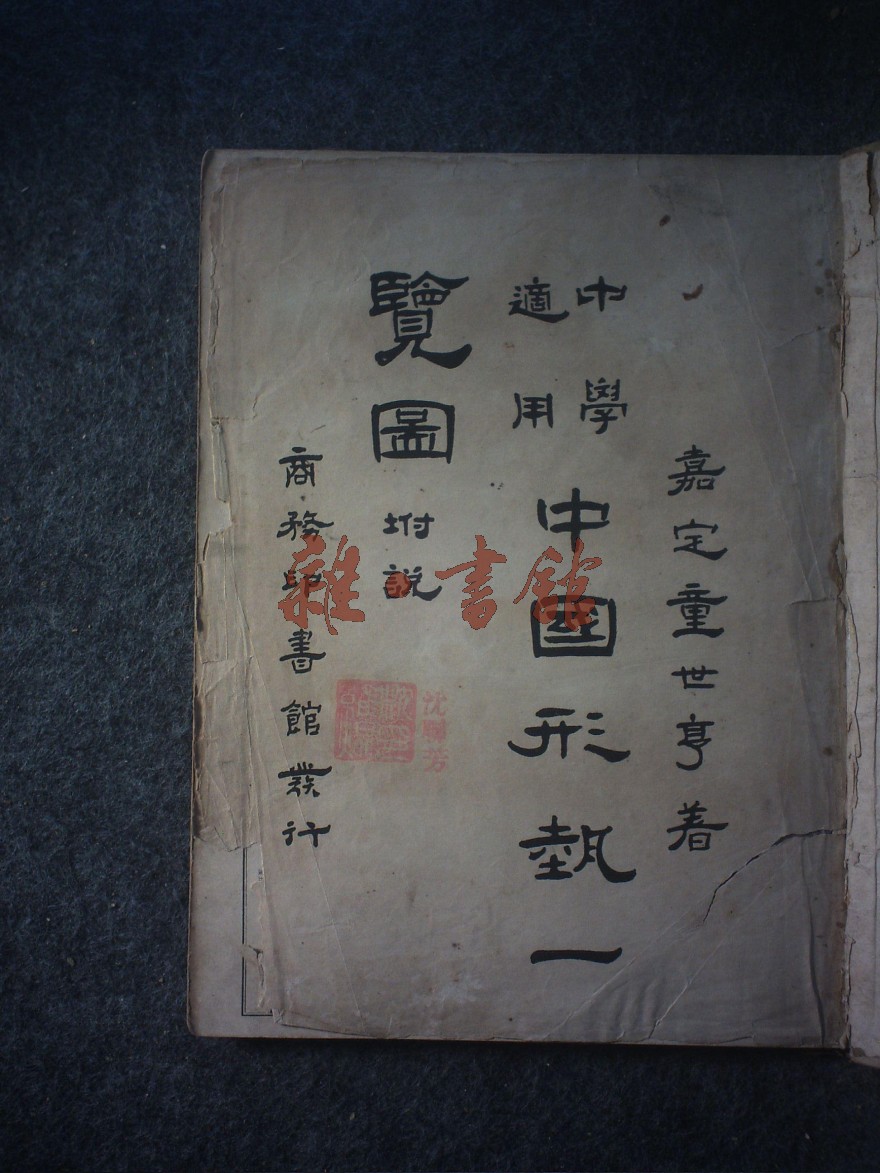 嘉定童世亨著
中學
適用
中國形埶一
覽圖坿說
商務印書館發行
沈聯芳
雜·書館